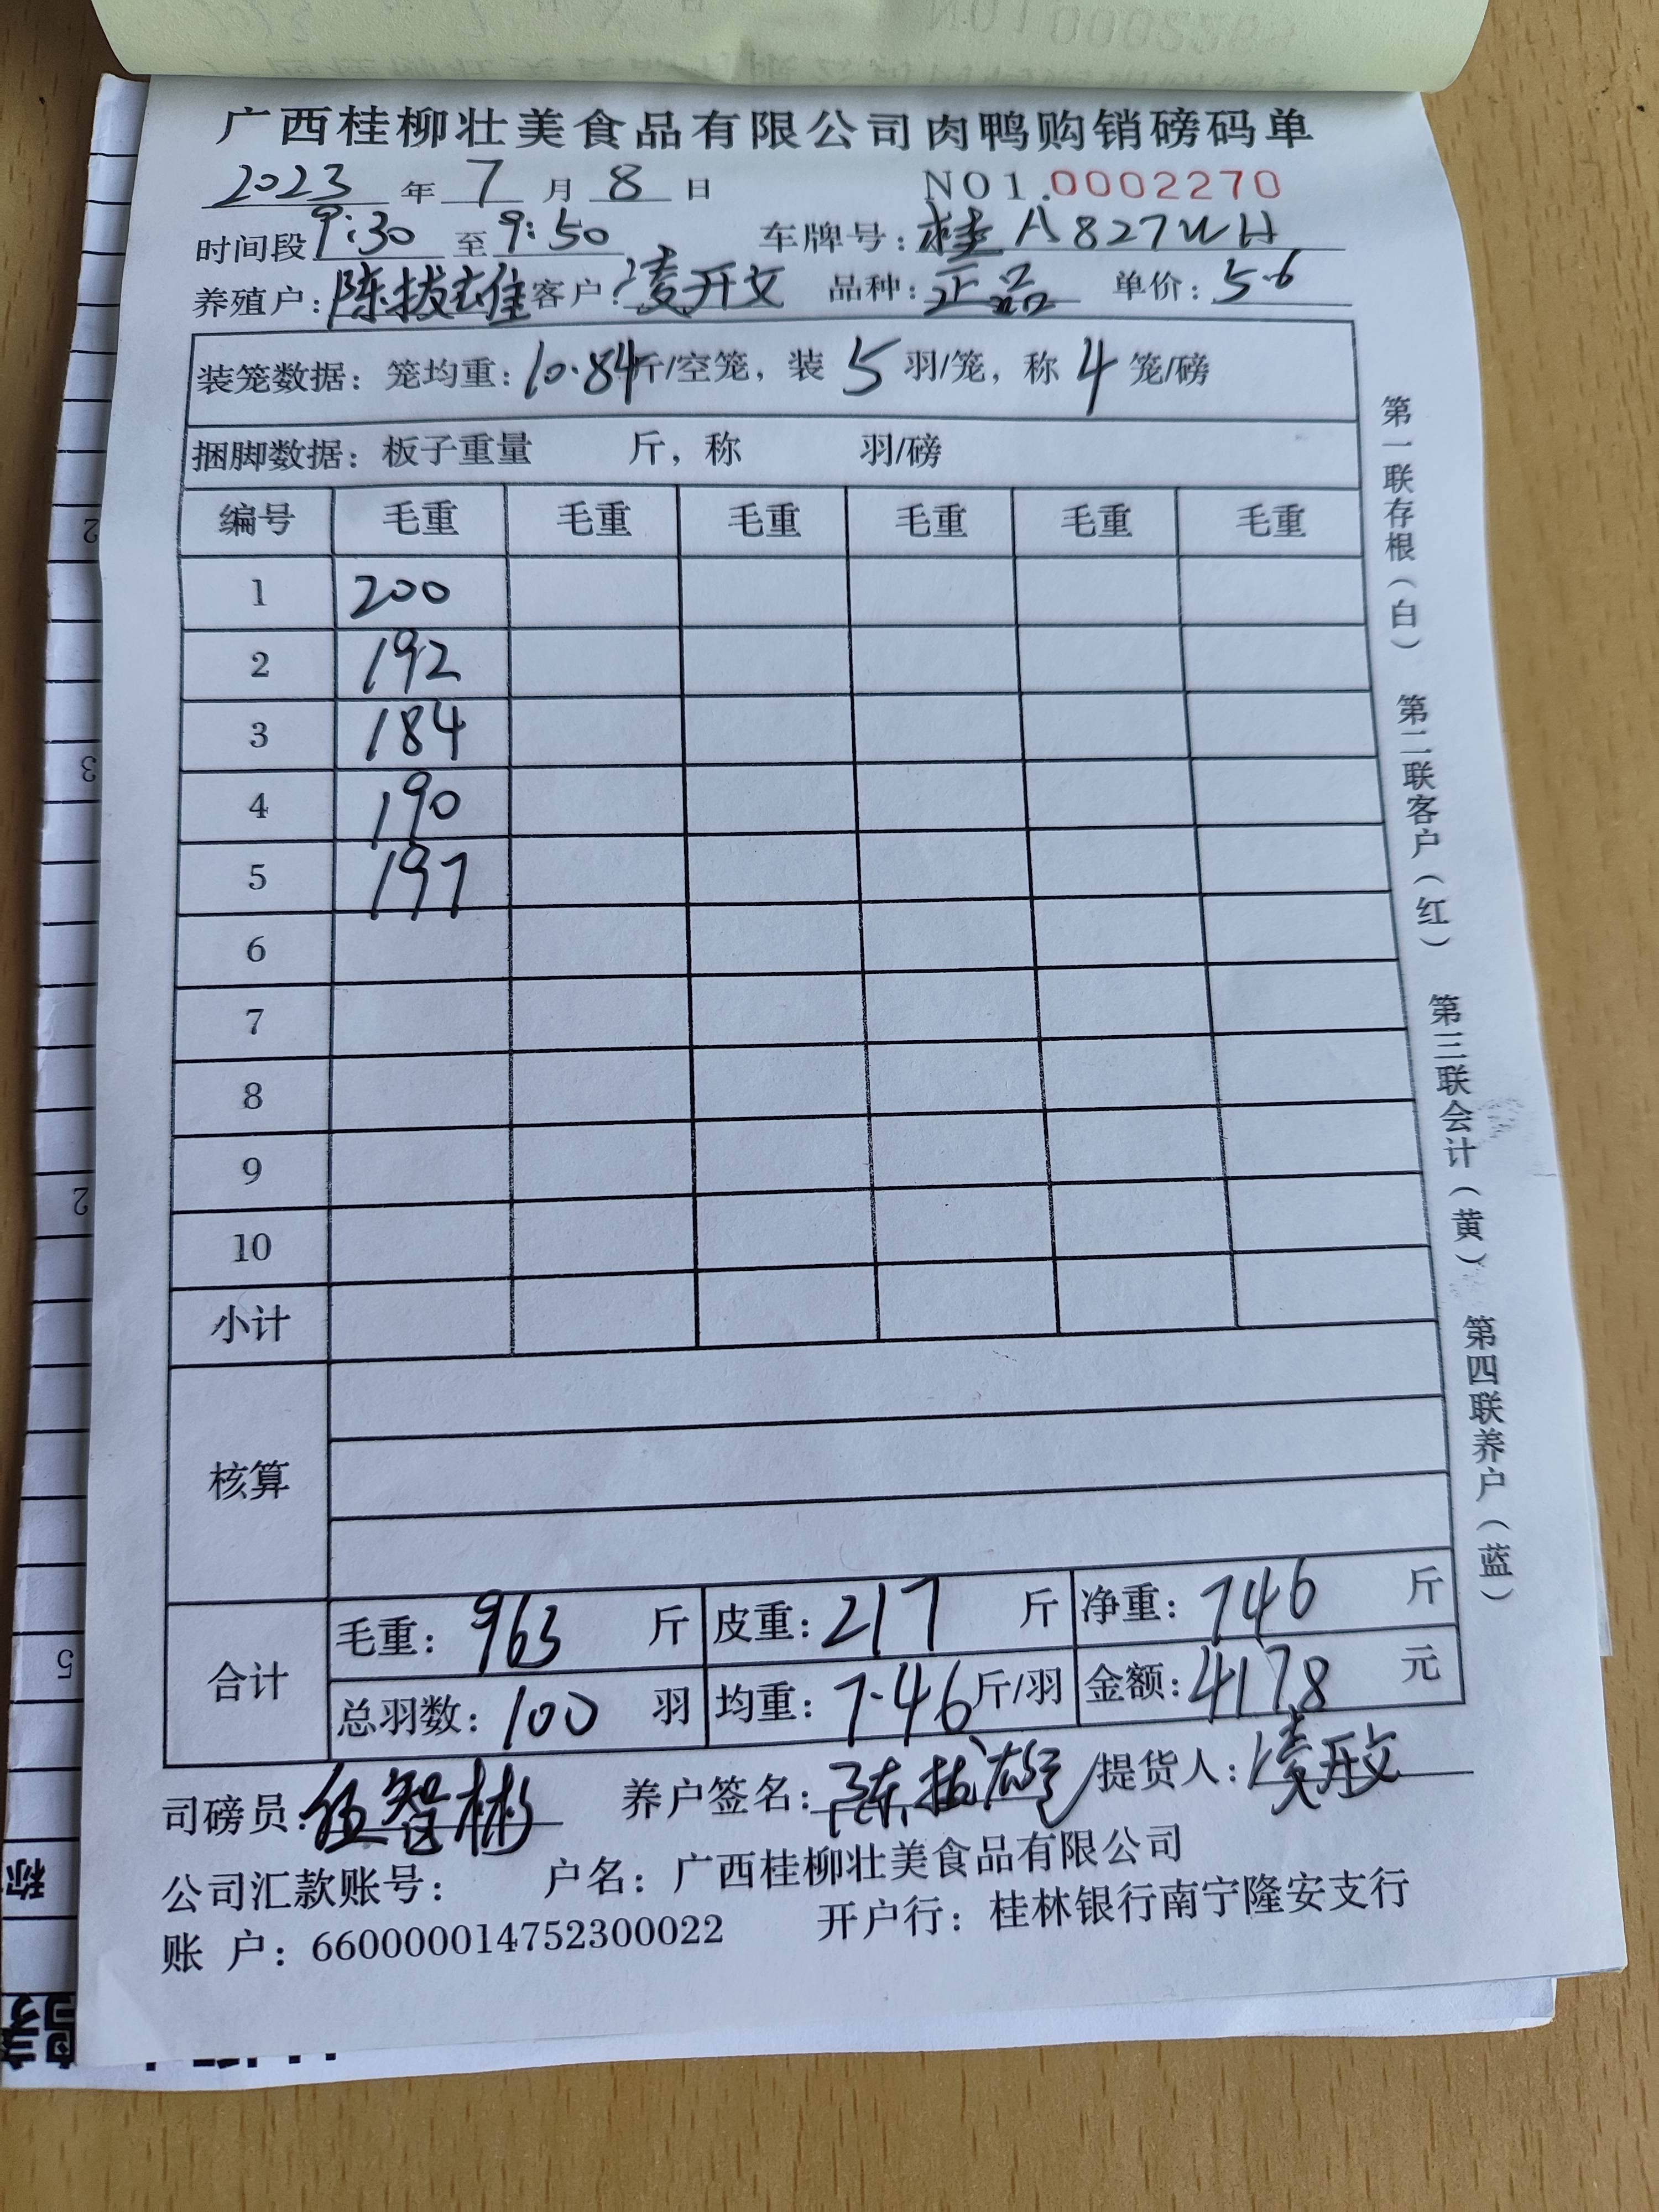 广西桂柳壮美食品有限公司肉鸭购销磅码单
2023 年 7 月 8 日 NO1.0002270
时间段 9:30 至 9:50 车牌号: 桂A827WH
养殖户: 陈拔雄 客户: 凌开文 品种: 正品 单价: 5.6
装笼数据: 笼均重: 10.84 斤/空笼, 装 5 羽/笼, 称 4 笼/磅
捆脚数据: 板子重量 斤, 称 羽/磅
编号 毛重 毛重 毛重 毛重 毛重 毛重
1 200
2 192
3 184
4 190
5 197
6
7
8
9
10
小计
核算
合计
毛重: 963 斤 皮重: 217 斤 净重: 746 斤
总羽数: 100 羽 均重: 7.46 斤/羽 金额: 4178 元
司磅员: 伍智彬 养户签名: 陈拔雄 提货人: 凌开文
公司汇款账号: 户名: 广西桂柳壮美食品有限公司
账 户: 660000014752300022 开户行: 桂林银行南宁隆安支行
第一联存根(白) 第二联客户(红) 第三联会计(黄) 第四联养户(蓝)
2
3
2
5
称